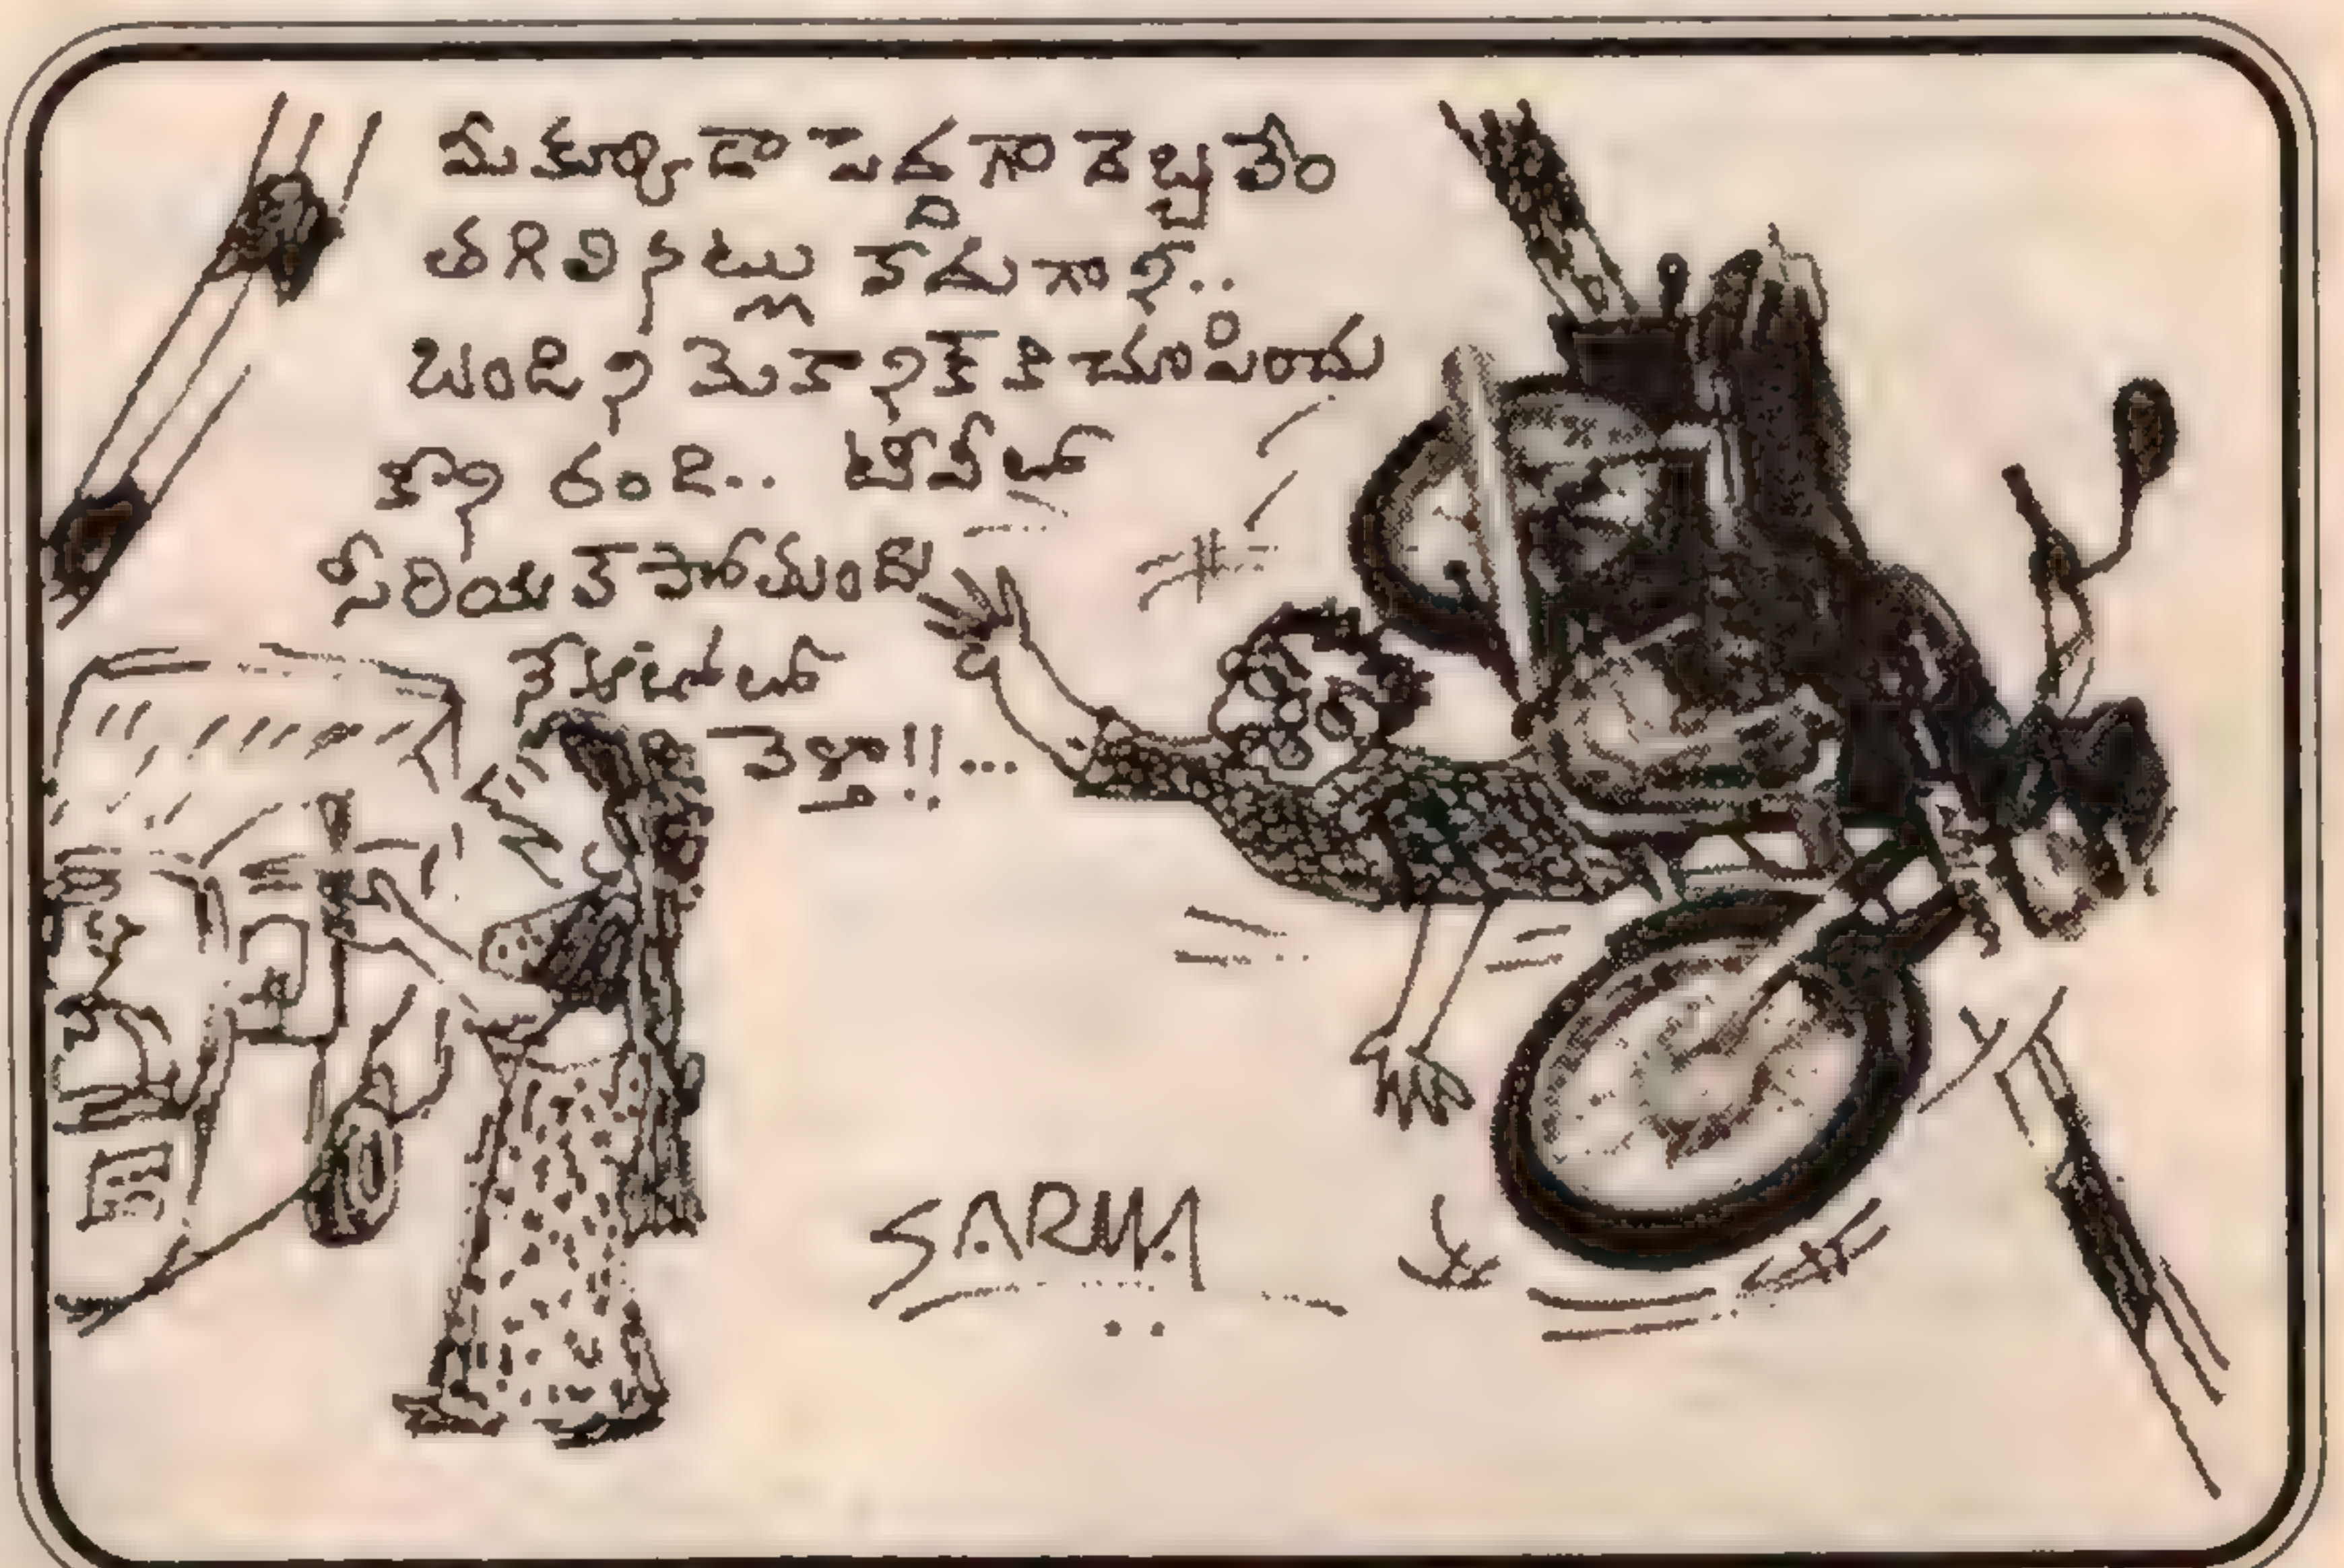 మీక్కూడా పెద్దగా దెబ్బలేం
తగిలినట్టు లేదుగానీ..
బండిని మెకానిక్ కి చూపించు
కాని రండి.. టీవీలో
సీరియల్ టైముంది
నే ఆటోలో
వెళ్తా!!...
SARMA